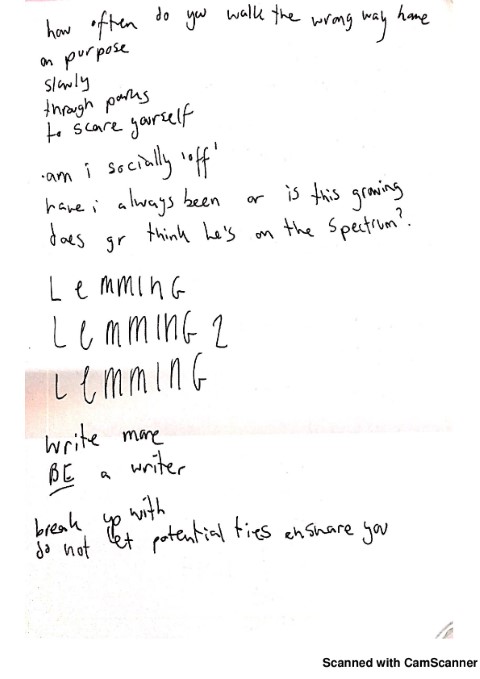 how often do you walk the wrong way home
on purpose
slowly
through parks
to scare yourself
.am i socially 'off'
have i always been or is this growing
does gr think he's on the spectrum?.
LemmING
LemmING 2
LemmING
write more
BE a writer
break up with
do not let potential ties ensnare you
Scanned with CamScanner